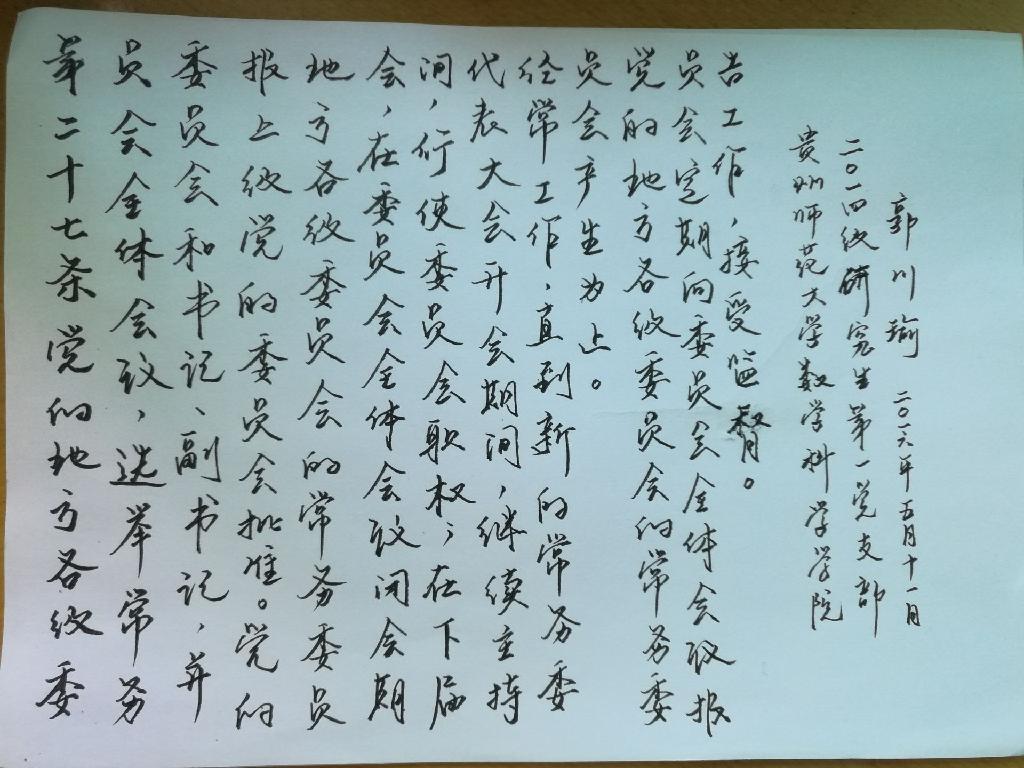 第二十七条党的地方各级委
员会全体会议，选举常务
委员会和书记、副书记，并
报上级党的委员会批准。党的
地方各级委员会的常务委员
会，在委员会全体会议闭会期
间，行使委员会职权；在下届
代表大会开会期间，继续主持
经常工作，直到新的常务委
员会产生为止。
党的地方各级委员会的常务委
员会定期向委员会全体会议报
告工作，接受监督。
贵州师范大学数学科学学院
二〇一四级研究生第一党支部
郭川瑜 二〇一六年五月十一日